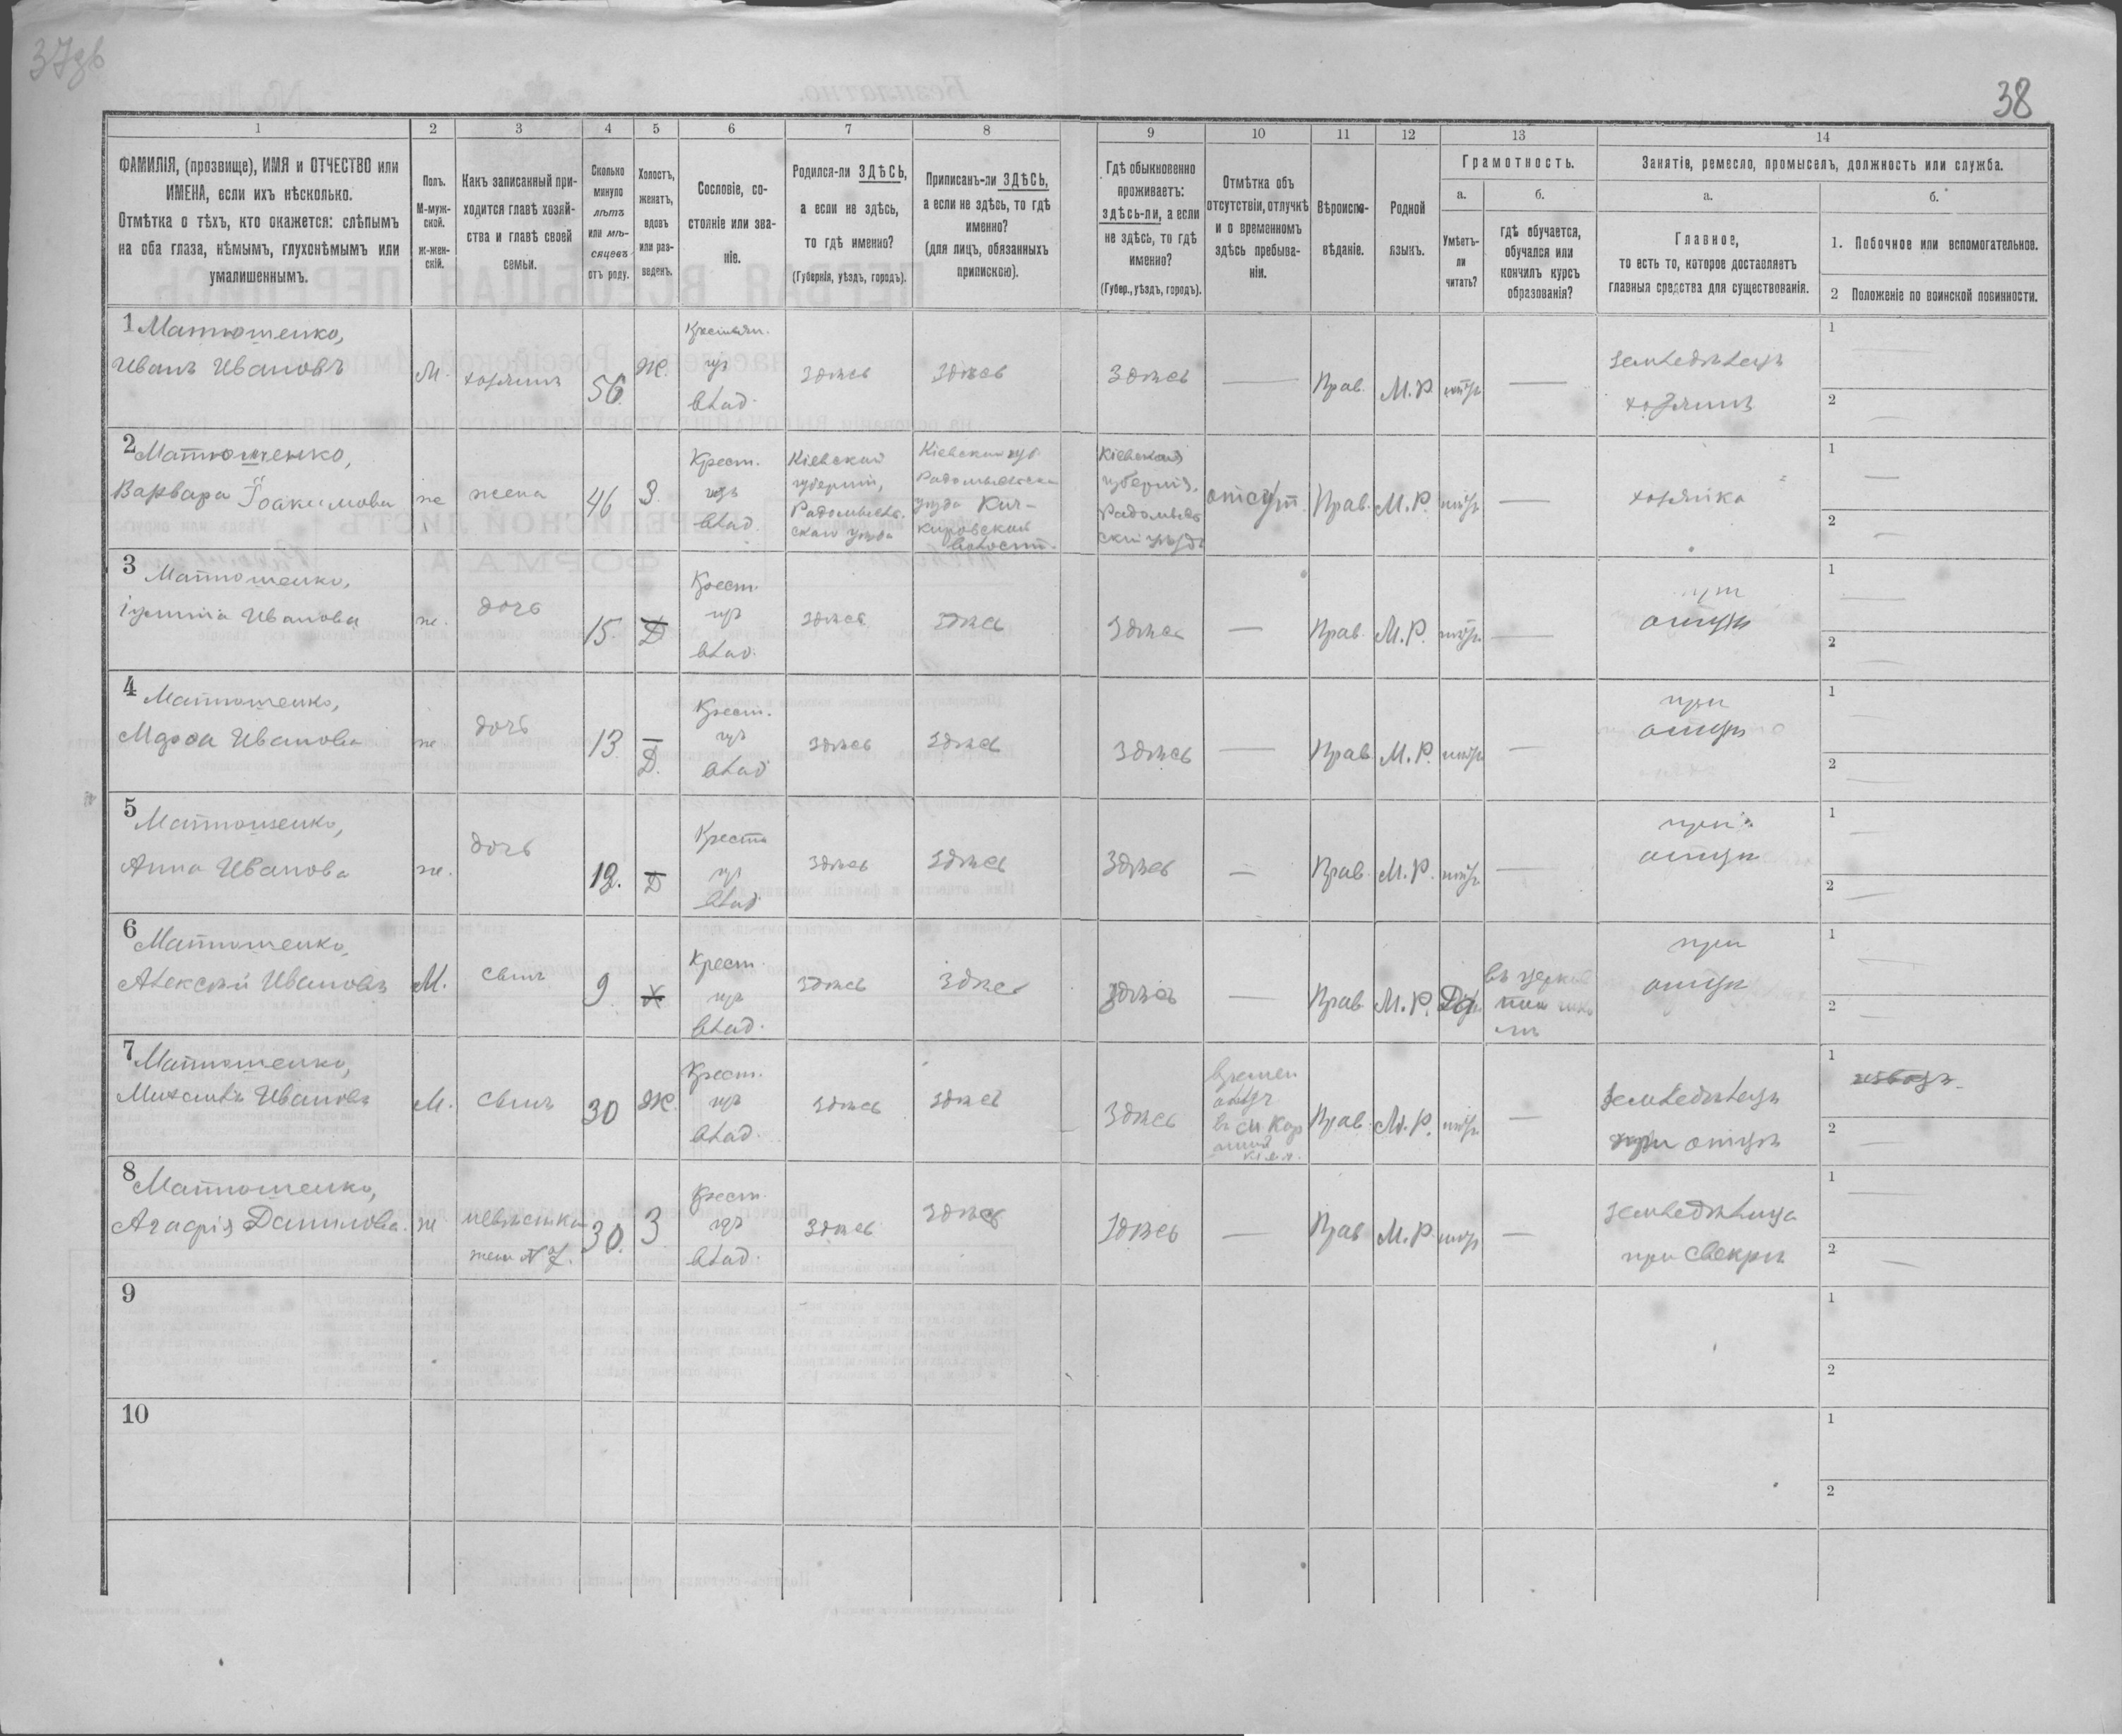 37зв
38
1 2 3 4 5 6 7 8 9 10 11 12 13 14
ФАМИЛІЯ, (прозвище), ИМЯ и ОТЧЕСТВО или
ИМЕНА, если ихъ нѣсколько.
Отмѣтка о тѣхъ, кто окажется: слѣпымъ
на оба глаза, нѣмымъ, глухонѣмымъ или
умалишеннымъ.
Полъ.
М-муж-
ской.
ж-жен-
скій.
Какъ записанный при-
ходится главѣ хозяй-
ства и главѣ своей
семьи.
Сколько
минуло
лѣтъ
или мѣ-
сяцевъ
отъ роду.
Холостъ,
женатъ,
вдовъ
или раз-
веденъ.
Сословіе, со-
стояніе или зва-
ніе.
Родился-ли ЗДѢСЬ,
а если не здѣсь,
то гдѣ именно?
(Губернія, уѣздъ, городъ).
Приписанъ-ли ЗДѢСЬ,
а если не здѣсь, то гдѣ
именно?
(для лицъ, обязанныхъ
припискою).
Гдѣ обыкновенно
проживаетъ:
здѣсь-ли, а если
не здѣсь, то гдѣ
именно?
(Губер., уѣздъ, городъ).
Отмѣтка объ
отсутствіи, отлучкѣ
и о временномъ
здѣсь пребыва-
ніи.
Вѣроиспо-
вѣданіе.
Родной
языкъ.
Грамотность.
а.
Умѣетъ-
ли
читать?
б.
гдѣ обучается,
обучался или
кончилъ курсъ
образованія?
Занятіе, ремесло, промыселъ, должность или служба.
а.
Главное,
то есть то, которое доставляетъ
главныя средства для существованія.
б.
1. Побочное или вспомогательное.
2 Положеніе по воинской повинности.
1 Матюшенко,
Иванъ Ивановъ
М.
хозяинъ
56.
Ж.
Крестьян.
изъ
влад.
здѣсь
здѣсь
Здѣсь
—
Прав.
М. Р.
нѣтъ
—
земледѣлецъ
хозяинъ
1
2
2 Матюшенко,
Варвара Іоакимова
ж
жена
46
З.
Крест.
изъ
влад.
Кіевской
губерніи,
Радомысль-
скаго уѣзда
Кіевской губ
Радомысльска
уѣзда Кич-
кировской
волости.
Кіевская
губернія,
Радомысль
скій уѣздъ
отсут
Прав.
М. Р.
нѣтъ
—
хозяйка
1
2
3 Матюшенко,
Іустина Иванова
ж.
дочь
15.
Д
Крест.
изъ
влад.
здѣсь
здѣсь
здѣсь
—
Прав.
М. Р.
нѣтъ
—
при
отцѣ
1
2
4 Матюшенко,
Марфа Иванова
ж
дочь
13
Д.
Крест.
изъ
влад
здѣсь
здѣсь
здѣсь
—
Прав
М. Р.
нѣтъ
—
при
отцѣ
1
2
5 Матюшенко,
Анна Иванова
ж.
дочь
12.
Д
Кресть
изъ
влад
здѣсь
здѣсь
здѣсь
—
Прав.
М. Р.
нѣтъ
—
при
отцѣ
1
2
6 Матюшенко,
Алексѣй Ивановъ
М.
сынъ
9
Х
Крест.
изъ
влад.
здѣсь
здѣсь
здѣсь
—
Прав
М. Р.
Да
въ церков
ной шко
лѣ
при
отцѣ
1
2
7 Матюшенко,
Михаилъ Ивановъ
М.
сынъ
30
Ж.
Крест.
изъ
влад.
здѣсь
здѣсь
здѣсь
Времен
Прав.
М. Р.
нѣтъ
—
Земледѣлецъ
при отцѣ
1 извозъ
2
8 Матюшенко,
Агафія Данилова.
ж
невѣстка
жена №7.
30.
З
Крест.
изъ
влад.
здѣсь
здѣсь
здѣсь
—
Прав
М. Р.
нѣтъ
—
земледѣлица
при свекрѣ
1
2
9
1
2
10
1
2